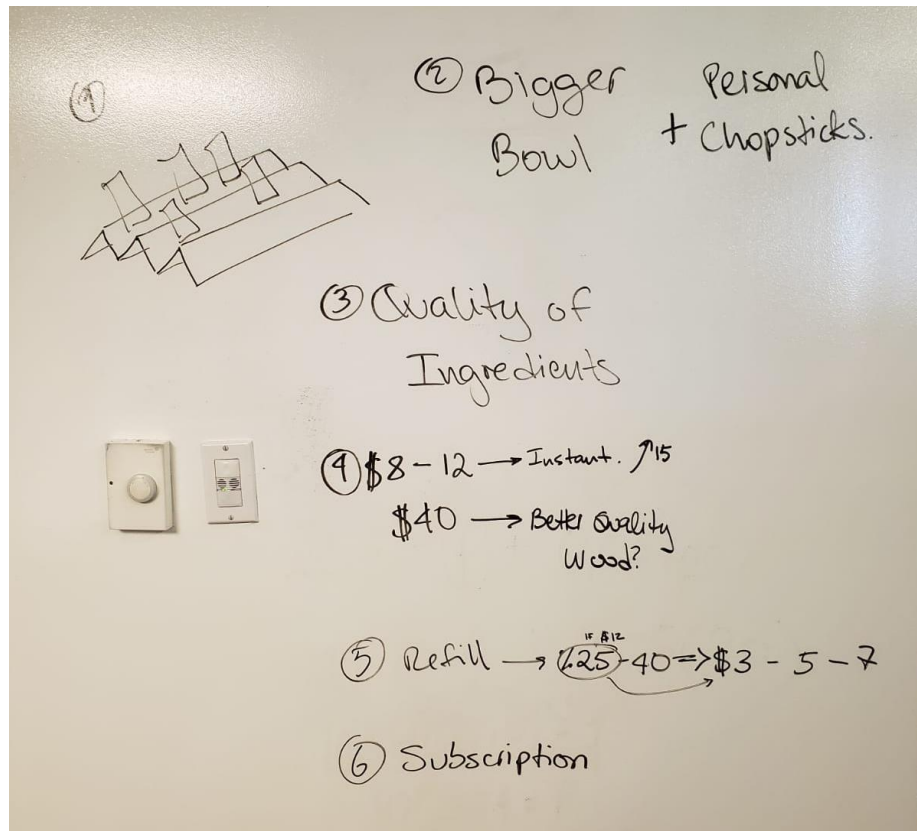 ①
② Bigger Bowl + Personal Chopsticks.
③ Quality of
Ingredients
④ $8 - 12 → Instant. ↗15
$40 → Better Quality
Wood?
IF $12
⑤ Refill → %25-40 => $3 - 5 - 7
⑥ Subscription